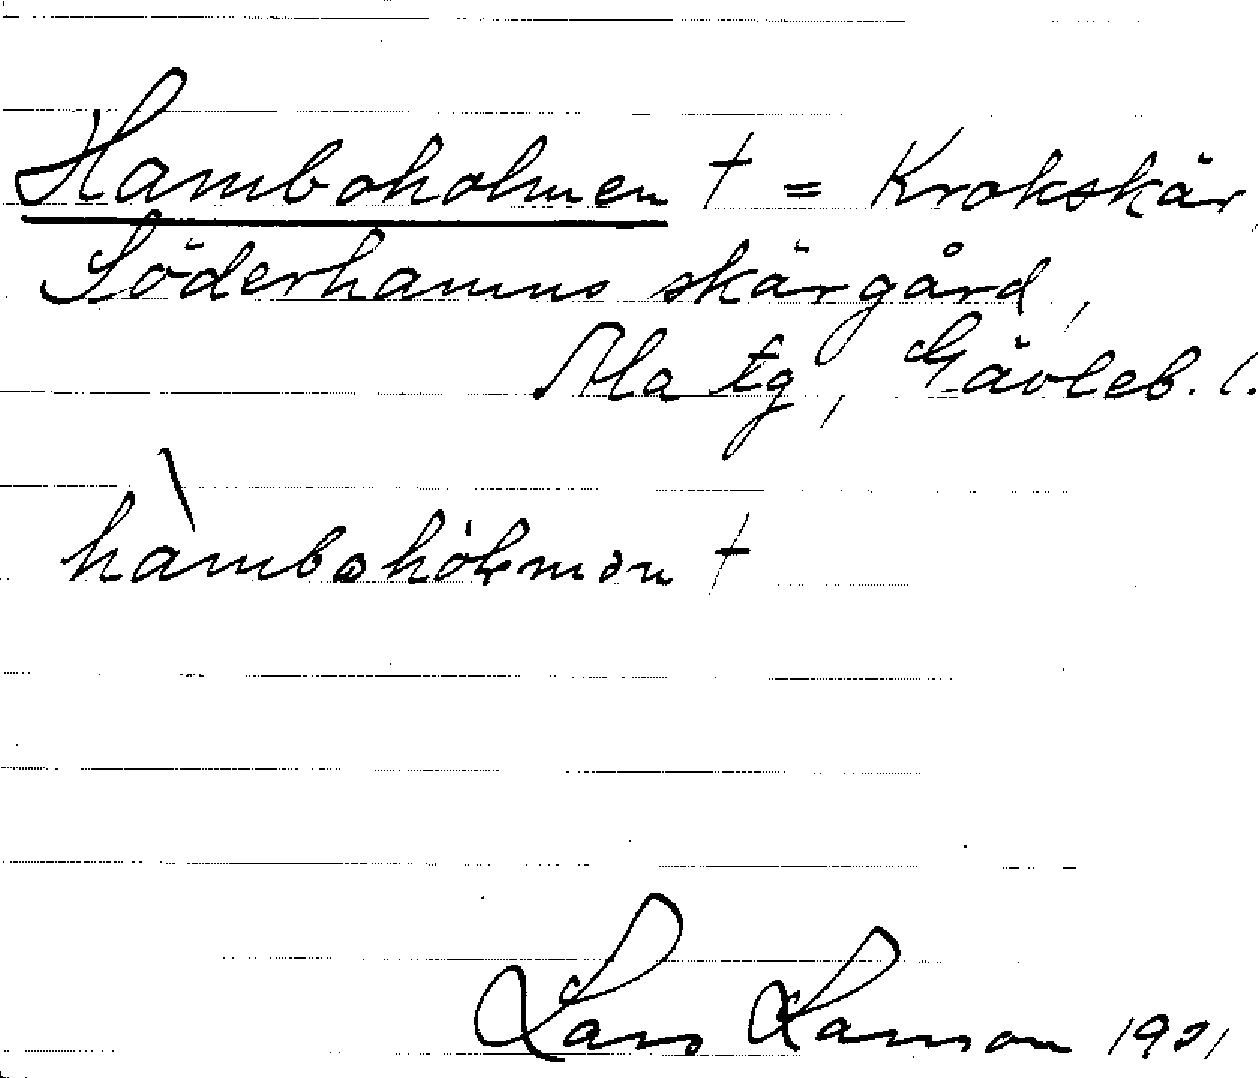 Hamboholmen † = Krokskär,
Söderhamns skärgård,
Ala tg, Gävleb. l.
hàmbohòlmən †
Lars Larsson 1931